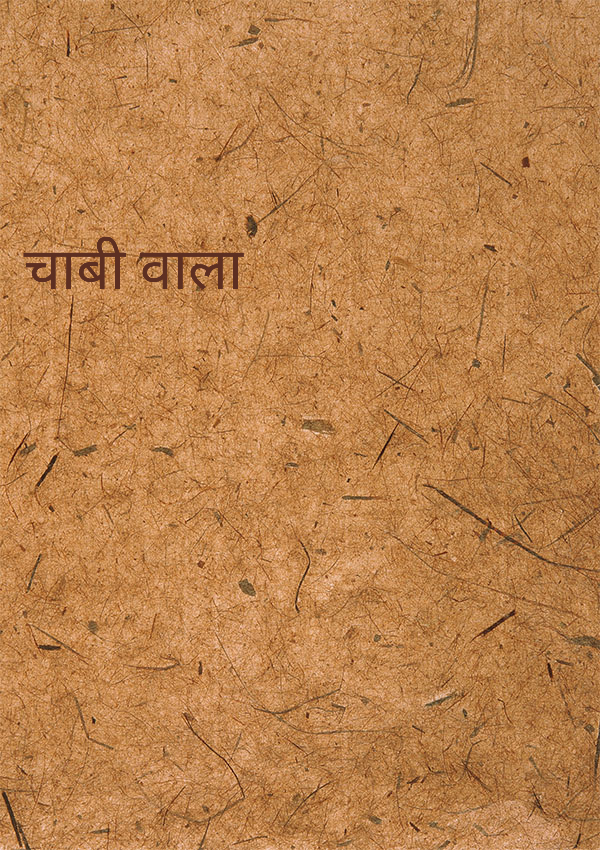 चाबी वाला